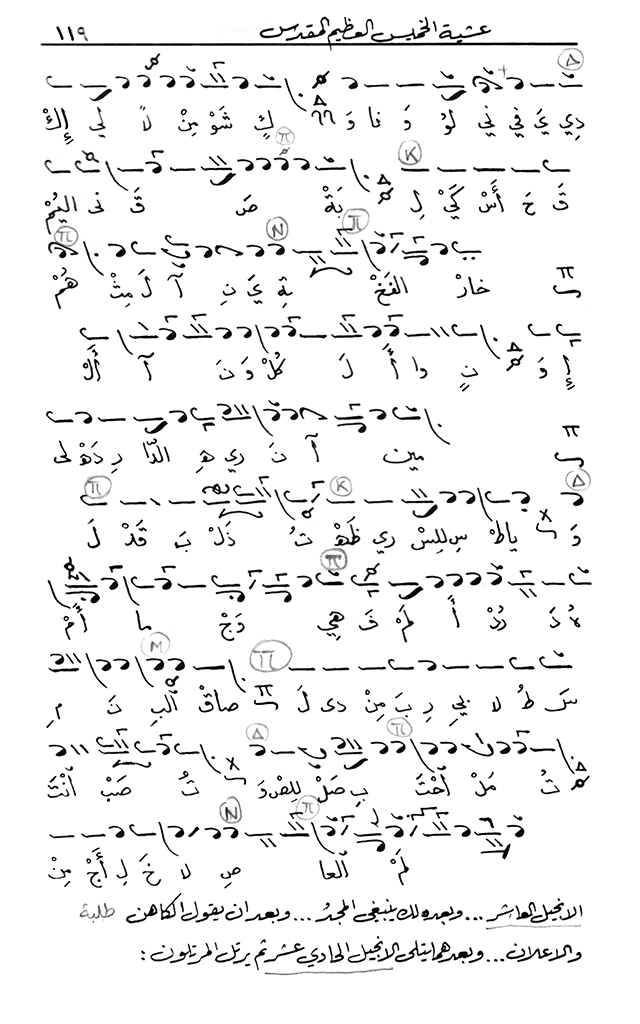 عشية الخميس العظيم المقدس ١١٩
دِي يَ فِي نِي لَوْ وَ فا وَ كِ شَوْ مِنْ لاً لي إِكْ
قَ حَ أَسْ كَيْ لِ بَةْ صَ قَ نى اليُمْ
خارْ الفَخْ بِةِ يَ نِ آ لَ مِثْ هُمْ
إِ وَ نٍ وا أَ لَ كُلْ وَ نَ آ أَلْ
مين آ نَ ري هِ الدّا رِ دَهْ لى
وَ ياطْ سِ للِسْ ري ظَهْ تُ ذَلْ بَ قَدْ لَ
هُ دَ رُدْ أَ لَمْ فَ هي وَجْ ما أَمْ
سَ طُ لا بي رِ بَ مِنْ دى لَ صاقْ البِ نَ مِ
تُ مَلْ احْتَ بِ صَلْ للِصْ وَ تُ صَبْ أَنْتَ
لَمْ العا صِ لا خَ لِ أَجْ مِنْ
الانجيل العاشر ... وبعد ذلك ينبغي المجدُ ... وبعد ان يقول الكاهن طلبة
والاعلان ... وبعدهما يتلى الانجيل الحادي عشر ثم يرتل المرتلون :